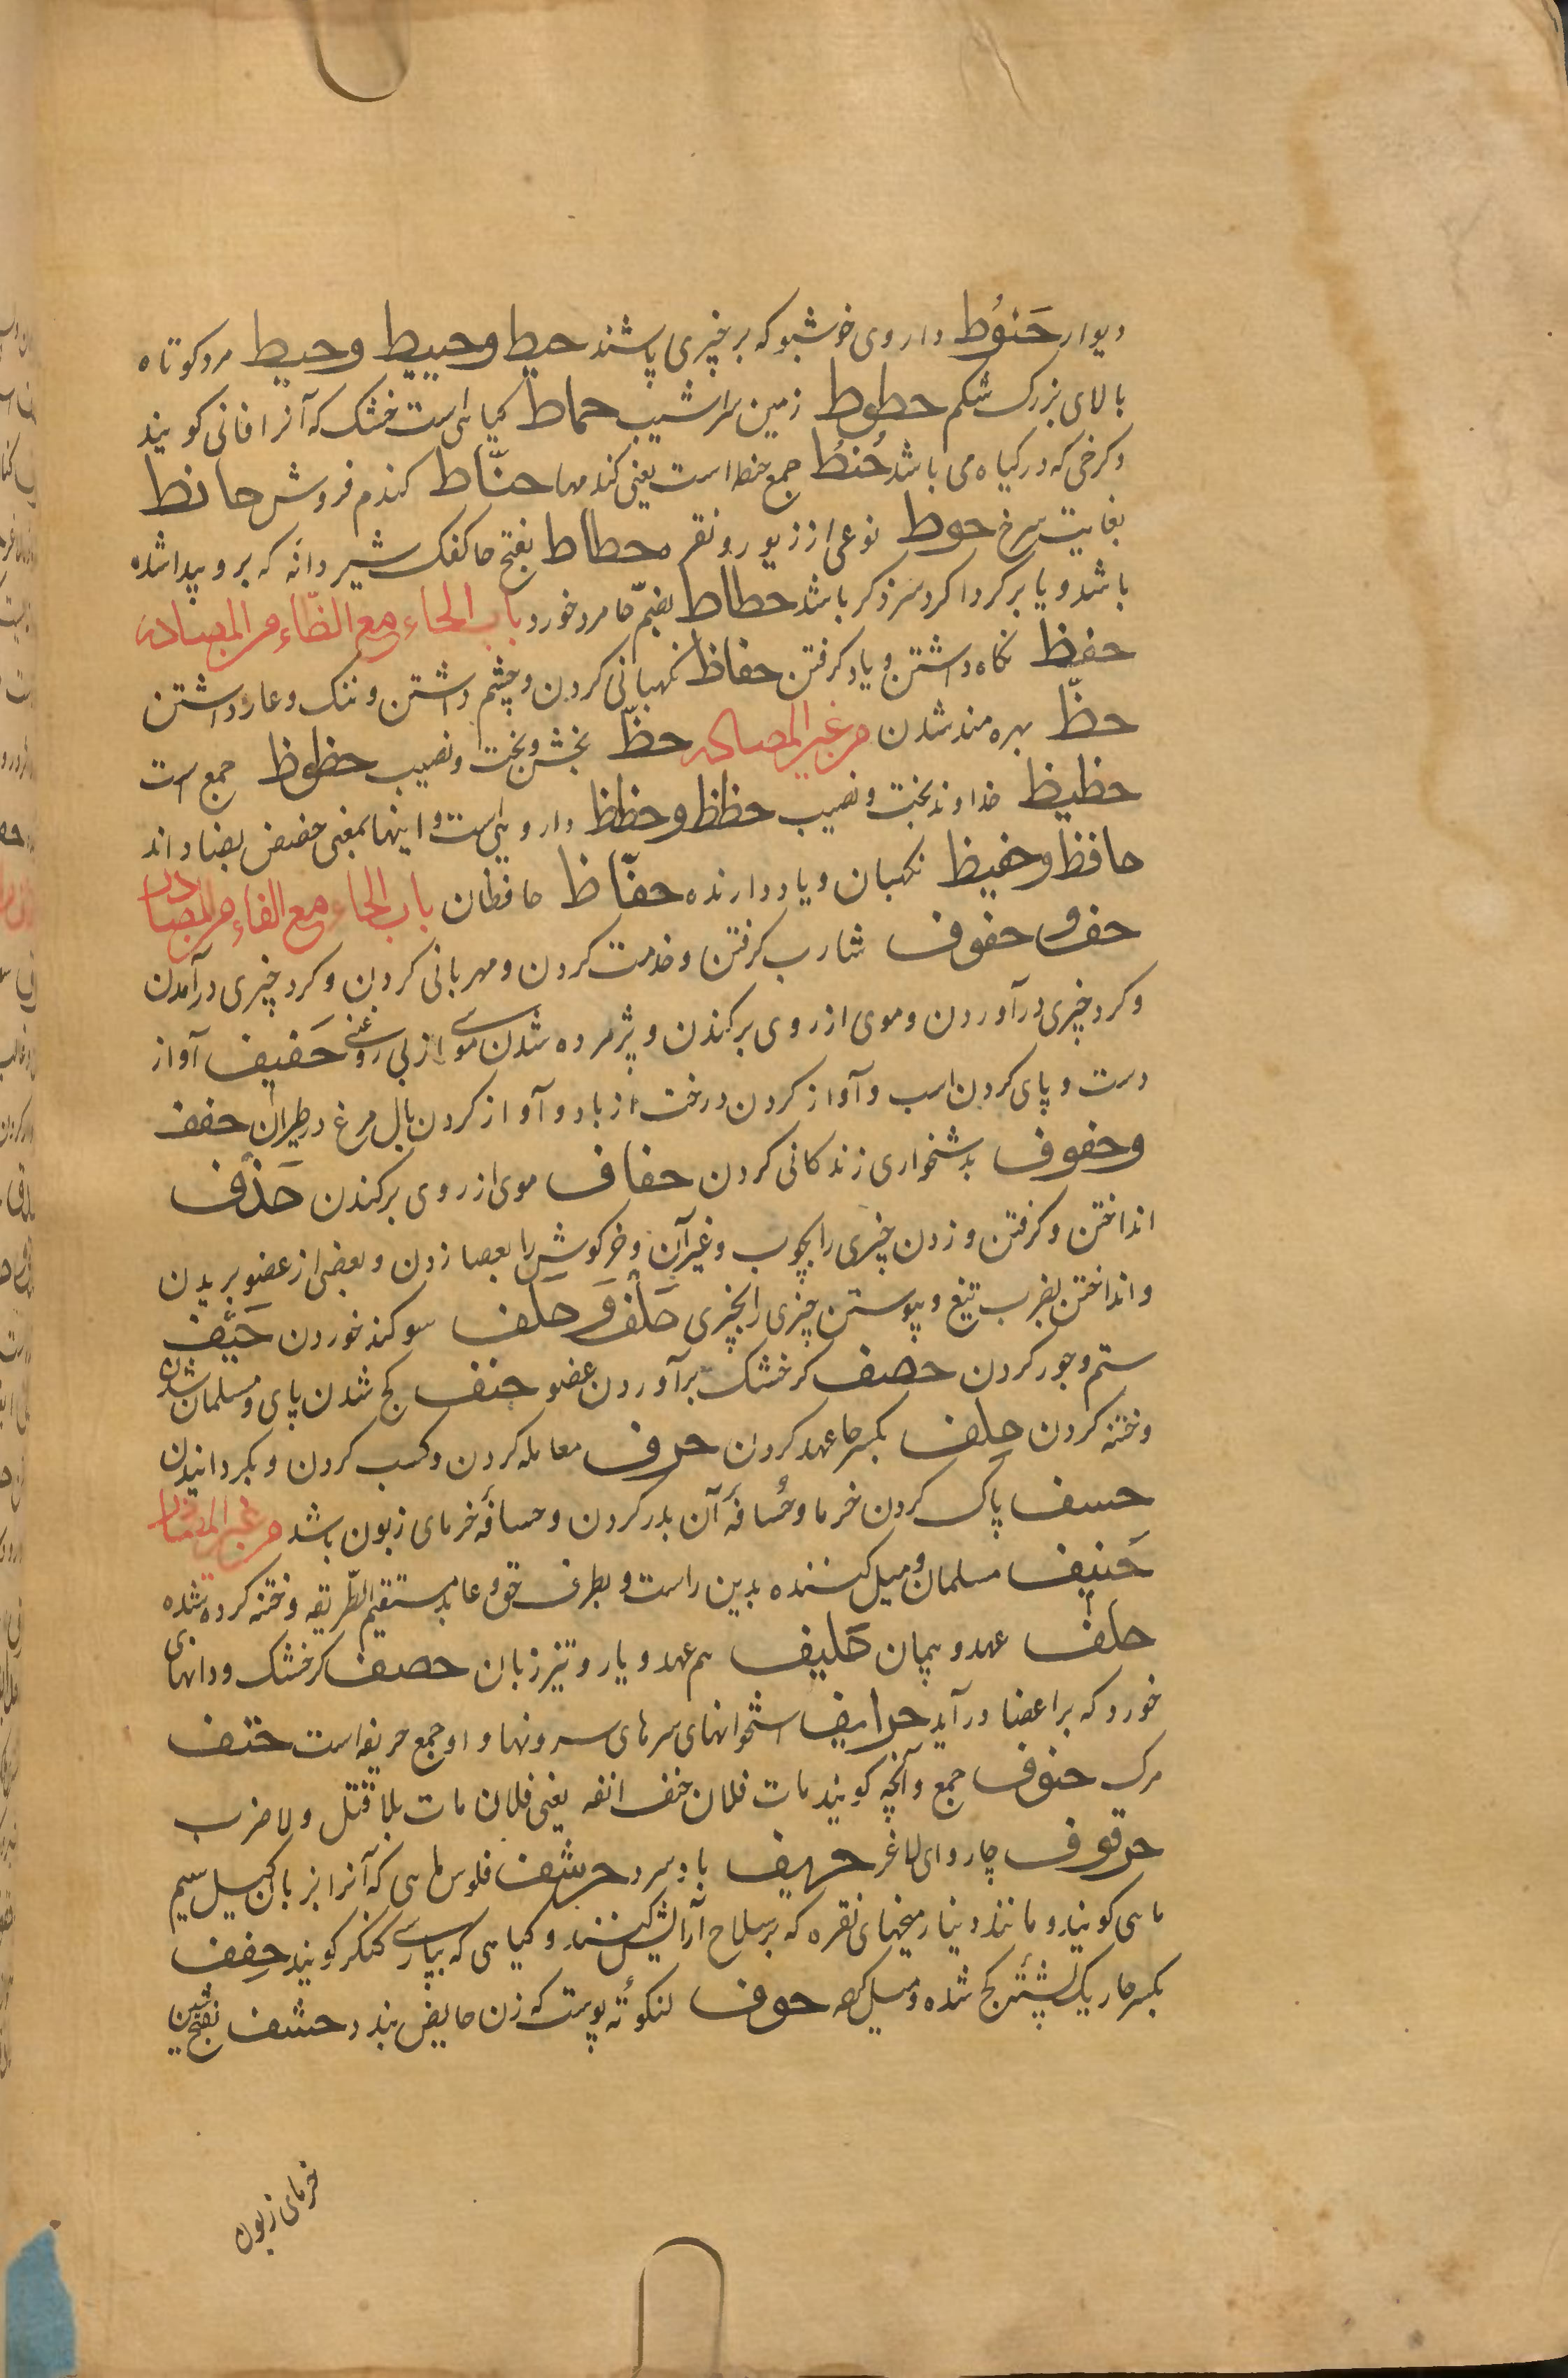 دیوار حَنوُط داروی خوشبو که بر چیزی پاشند حیط وحییط وحیط مرد کوتاه
بالای بزرک شکم حطوط زمین سراشیب حماط کیاهی است خشک که آنرا افانی کویند
وکرخی که در کیاه می باشد حُنطُ جمع حنطه است یعنی کندمها حنّاط کندم فروش حانط
بغایت سرخ حوط نوعی از زیور و نقره حطاط بفتح حا کفک شیر و دانه که بر رو پیدا شده
باشد و یا بر کرداکرد سر ذکر باشد حطاط بضمّ حا مرد خورد باب الحاء مع الظّاء من المصادر
حفظ نکاه داشتن و یاد کرفتن حفاظ نکهبانی کردن و چشم داشتن و ننک و عار داشتن
حظّ بهره مند شدن من غیر المصادر حظّ بخش و بخت و نصیب حظوظ جمع است
حظیظ خداوند بخت و نصیب حظظ وحظظ داروییست و اینها بمعنی حضض بضاد اند
حافظ وحفیظ نکهبان و یاد دارنده حفّاظ حافظان باب الحاء مع الفاء من المصادر
حف و حفوف شارب کرفتن و خدمت کردن و مهربانی کردن و کرد چیزی درآمدن
و کرد چیزی درآوردن و موی از روی برکندن و پژمرده شدن موی از بی روغنی حَفیف آواز
دست و پای کردن اسب و آواز کردن درخت از باد و آواز کردن بال مرغ در طیران حفف
وحفوف بدشخواری زندکانی کردن حفاف موی از روی برکندن حَذْف
انداختن و کرفتن و زدن چیزی را بچوب و غیر آن و خرکوش را بعصا زدن و بعضی از عضو بریدن
و انداختن بضرب تیغ و پیوستن چیزی را بچیزی حَلْف وَحَلِف سوکند خوردن حَیْف
ستم و جور کردن حصف کر خشک برآوردن عضو حنف کج شدن پای و مسلمان شدن
و ختنه کردن حِلف بکسر حا عهد کردن حرف معامله کردن و کسب کردن و بکردانیدن
حسف پاک کردن خرما و حُسافهٔ آن بدر کردن و حسافهٔ خرمای زبون باشد من غیر المصادر
حَنیف مسلمان و میل کننده بدین راست و بطرف حق و عابد مستقیم الطّریقه و ختنه کرده شده
حلف عهد و پیمان حَلیف هم عهد و یار و تیز زبان حصف کر خشک و دانهای
خورد که بر اعضا درآید حرایف استخوانهای سرهای سرونها و او جمع حریفه است حتف
مرک حتوف جمع و آنچه کویند مات فلان حتف انفه یعنی فلان مات بلا قتل و لا ضرب
حرقوف چاروای لاغر حرهیف باد سرد حرشف فلوس ماهی که آنرا بزبان کیل سیم
ماهی کویند و مانند دینار میخهای نقره که بر سلاح آرایش کنند و کیاهی که بپارسی کنکر کویند حِقف
بکسر حا ریک پشته کج شده و میل کرده حوف لنکوته پوست که زن حایض بندد حشف بفتح شین
خرمای زبون